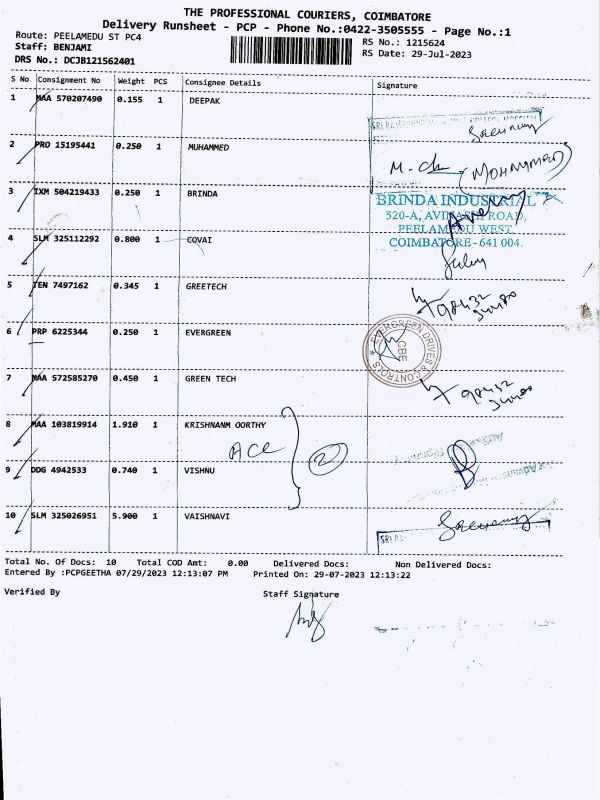 THE PROFESSIONAL COURIERS, COIMBATORE
Delivery Runsheet - PCP - Phone No.:0422-3505555 - Page No.:1
Route: PEELAMEDU ST PC4
RS No.: 1215624
Staff: BENJAMI
RS Date: 29-Jul-2023
DRS No.: DCJB121562401
S No Consignment No Weight PCS Consignee Details Signature
1 MAA 570207490 0.155 1 DEEPAK
2 PRO 15195441 0.250 1 MUHAMMED
3 IXM 504219433 0.250 1 BRINDA
BRINDA INDUSTRIAL
520-A, AVINASHI ROAD,
PEELAMEDU WEST,
COIMBATORE - 641 004.
4 SLM 325112292 0.800 1 COVAI
5 TEN 7497162 0.345 1 GREETECH
6 PRP 6225344 0.250 1 EVERGREEN
EVERGREEN DRIVES & CONTROLS
CBE
7 MAA 572585270 0.450 1 GREEN TECH
8 MAA 103819914 1.910 1 KRISHNANM OORTHY
ACE 2
9 DDG 4942533 0.740 1 VISHNU
10 SLM 325026951 5.900 1 VAISHNAVI
Total No. Of Docs: 10 Total COD Amt: 0.00 Delivered Docs: Non Delivered Docs:
Entered By :PCPGEETHA 07/29/2023 12:13:07 PM Printed On: 29-07-2023 12:13:22
Verified By Staff Signature